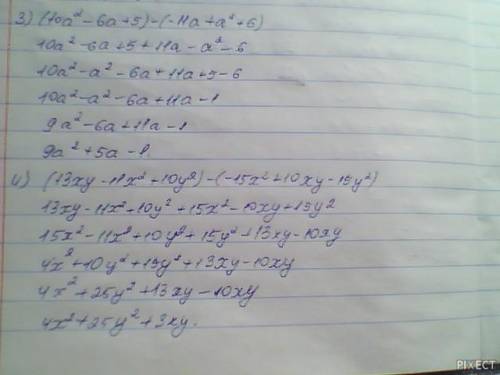 3) (10a²-6a+5)-(-11a+a²+6)
10a²-6a+5+11a-a²-6
10a²-a²-6a+11a+5-6
10a²-a²-6a+11a-1
9a²-6a+11a-1
9a²+5a-1.
4) (13xy-11x²+10y²)-(-15x²+10xy-15y²)
13xy-11x²+10y²+15x²-10xy+15y2
15x²-11x²+10y²+15y²+13xy-10xy
4x²+10y²+15y²+13xy-10xy
4x²+25y²+13xy-10xy
4x²+25y²+3xy.
PIXECT